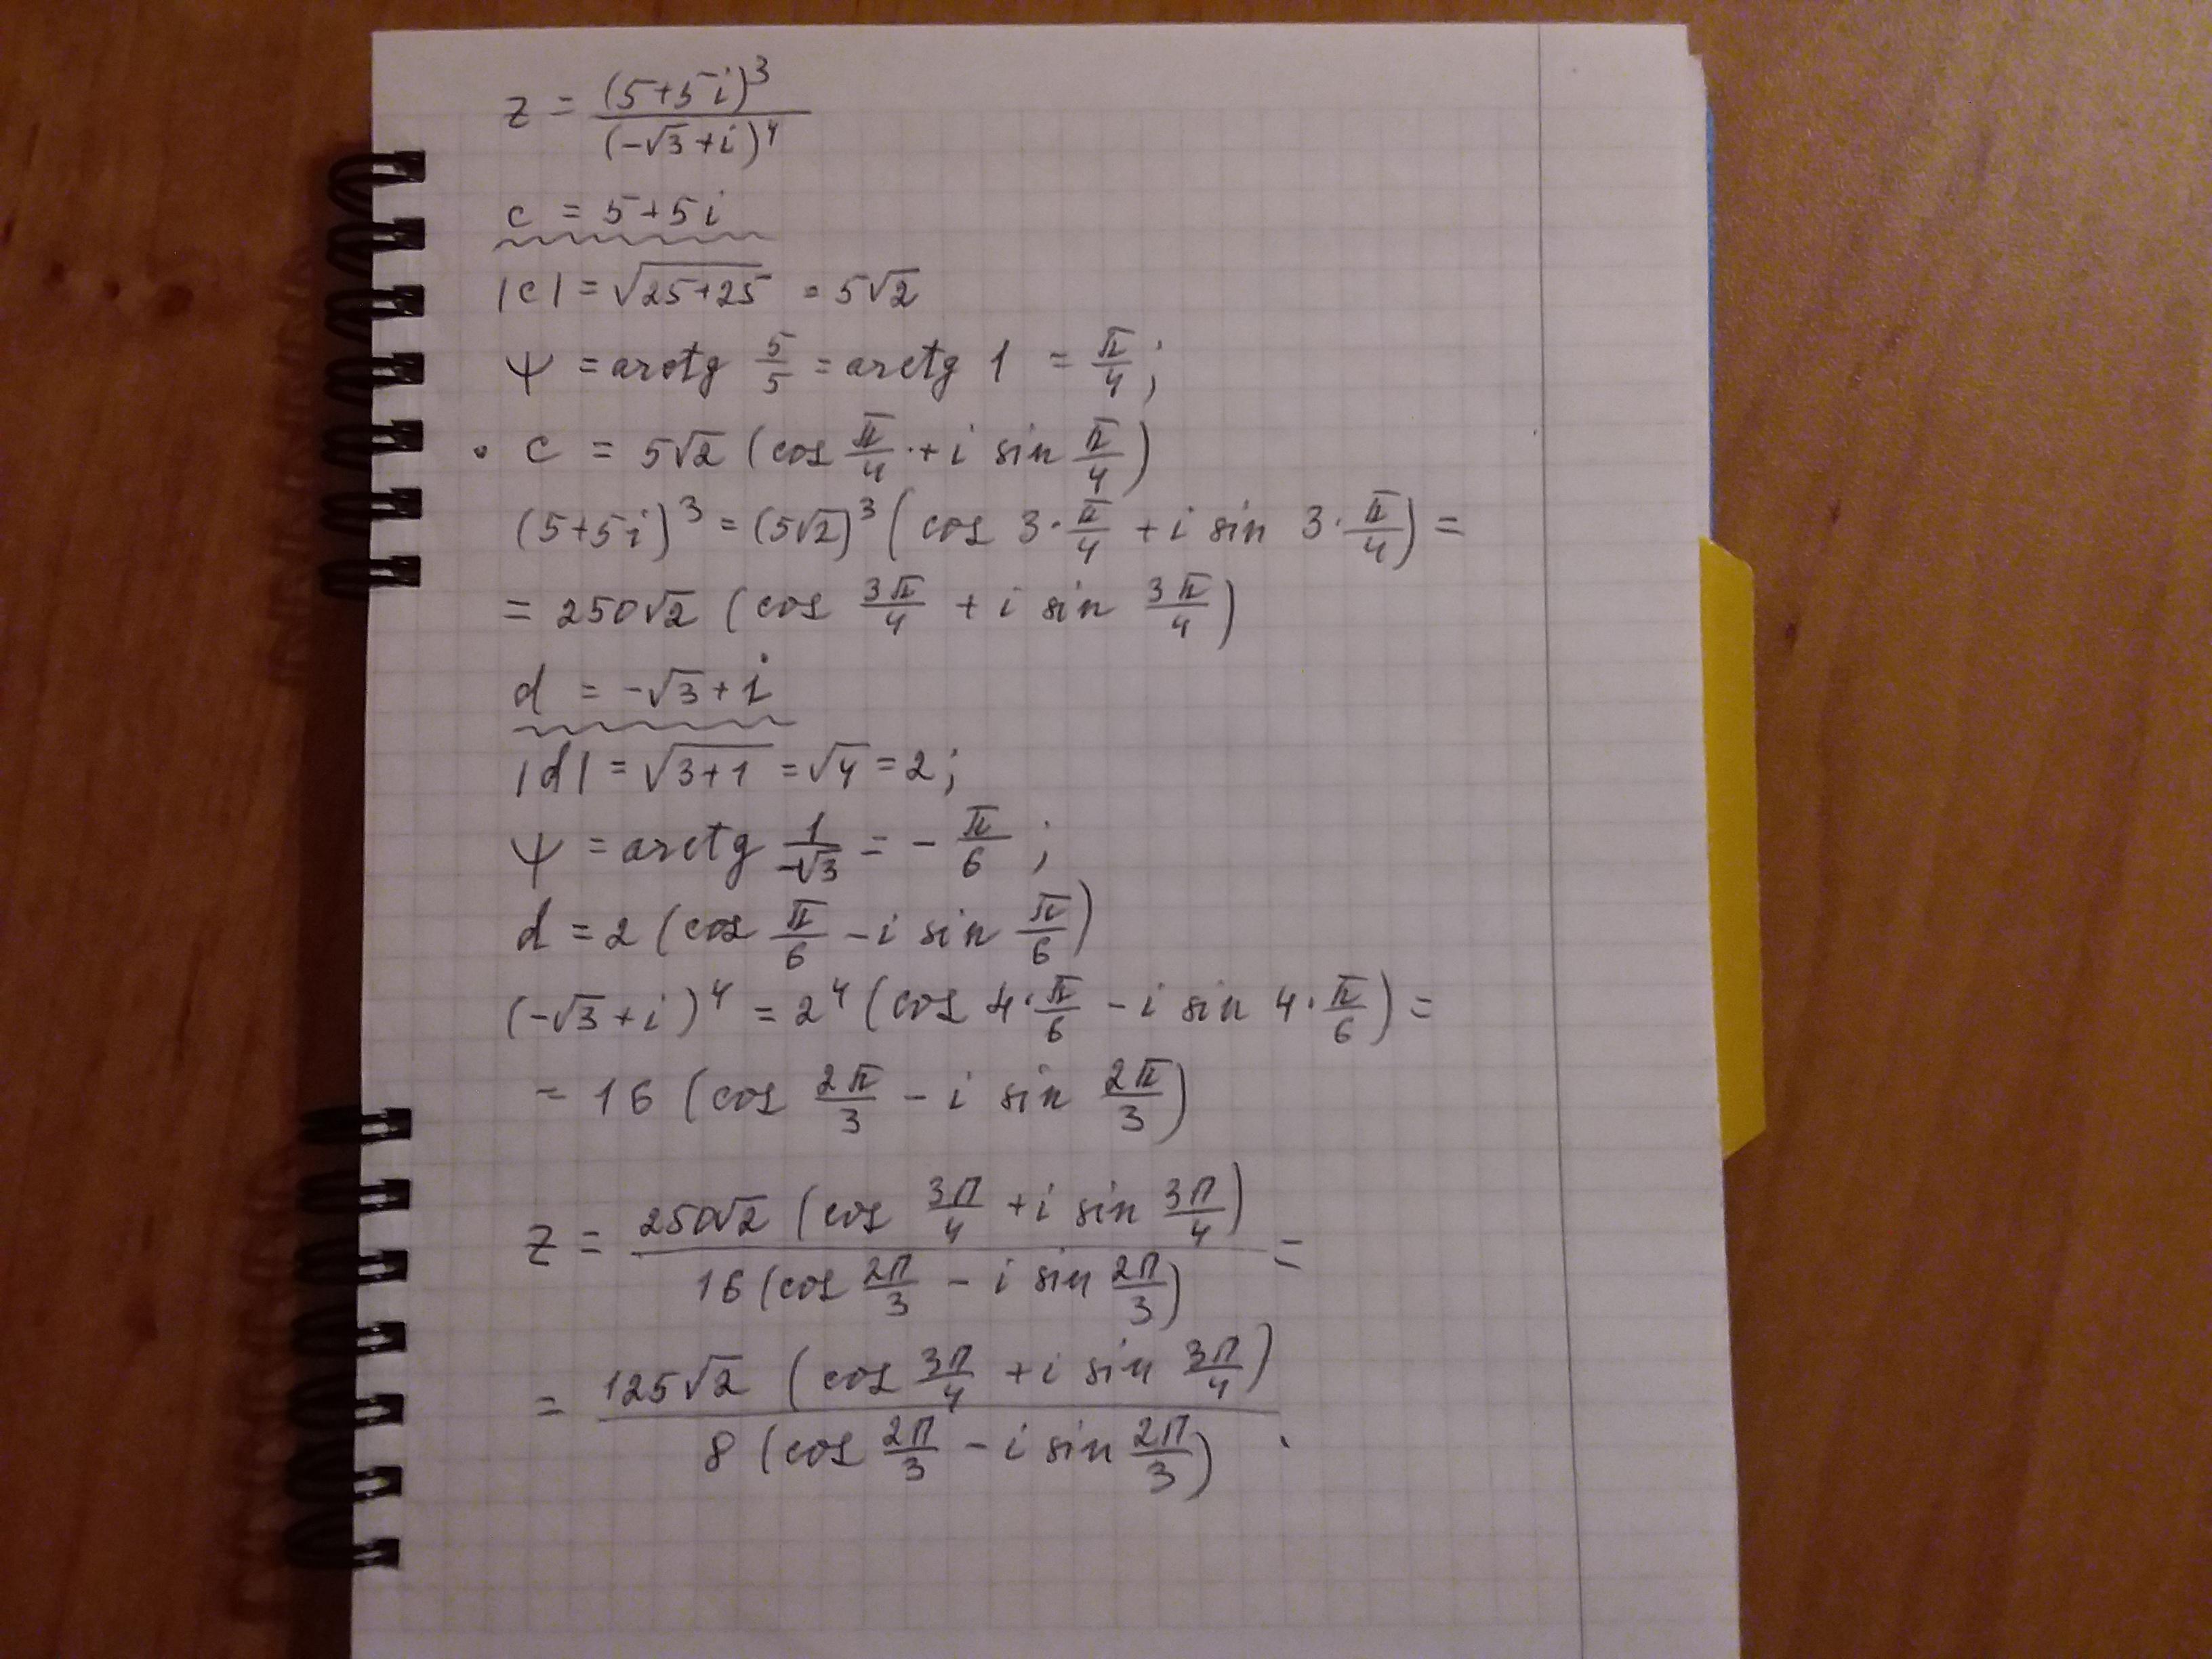 z = (5+5i)³ / (-√3+i)⁴
c = 5+5i
|c| = √(25+25) = 5√2
ψ = arctg 5/5 = arctg 1 = π/4;
• c = 5√2 (cos π/4 + i sin π/4)
(5+5i)³ = (5√2)³ (cos 3·π/4 + i sin 3·π/4) =
= 250√2 (cos 3π/4 + i sin 3π/4)
d = -√3+i
|d| = √(3+1) = √4 = 2;
ψ = arctg 1/-√3 = - π/6;
d = 2 (cos π/6 - i sin π/6)
(-√3+i)⁴ = 2⁴ (cos 4·π/6 - i sin 4·π/6) =
= 16 (cos 2π/3 - i sin 2π/3)
z = 250√2 (cos 3π/4 + i sin 3π/4) / 16 (cos 2π/3 - i sin 2π/3) =
= 125√2 (cos 3π/4 + i sin 3π/4) / 8 (cos 2π/3 - i sin 2π/3) .